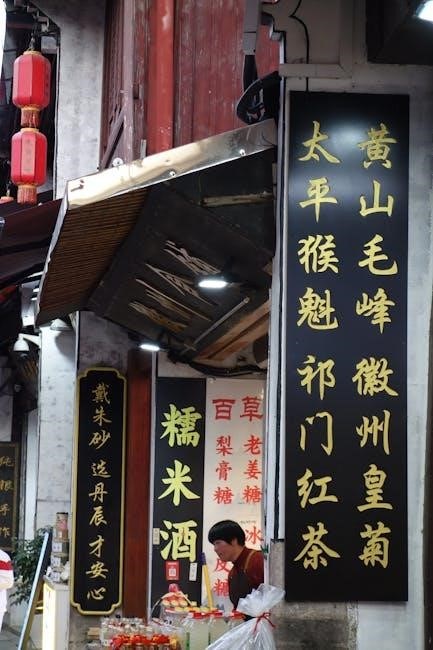 黄山毛峰 徽州皇菊
太平猴魁 祁门红茶
百草
老姜糖
梨膏糖
冰
皮糖
糯米酒
戴朱砂 选丹辰 才安心